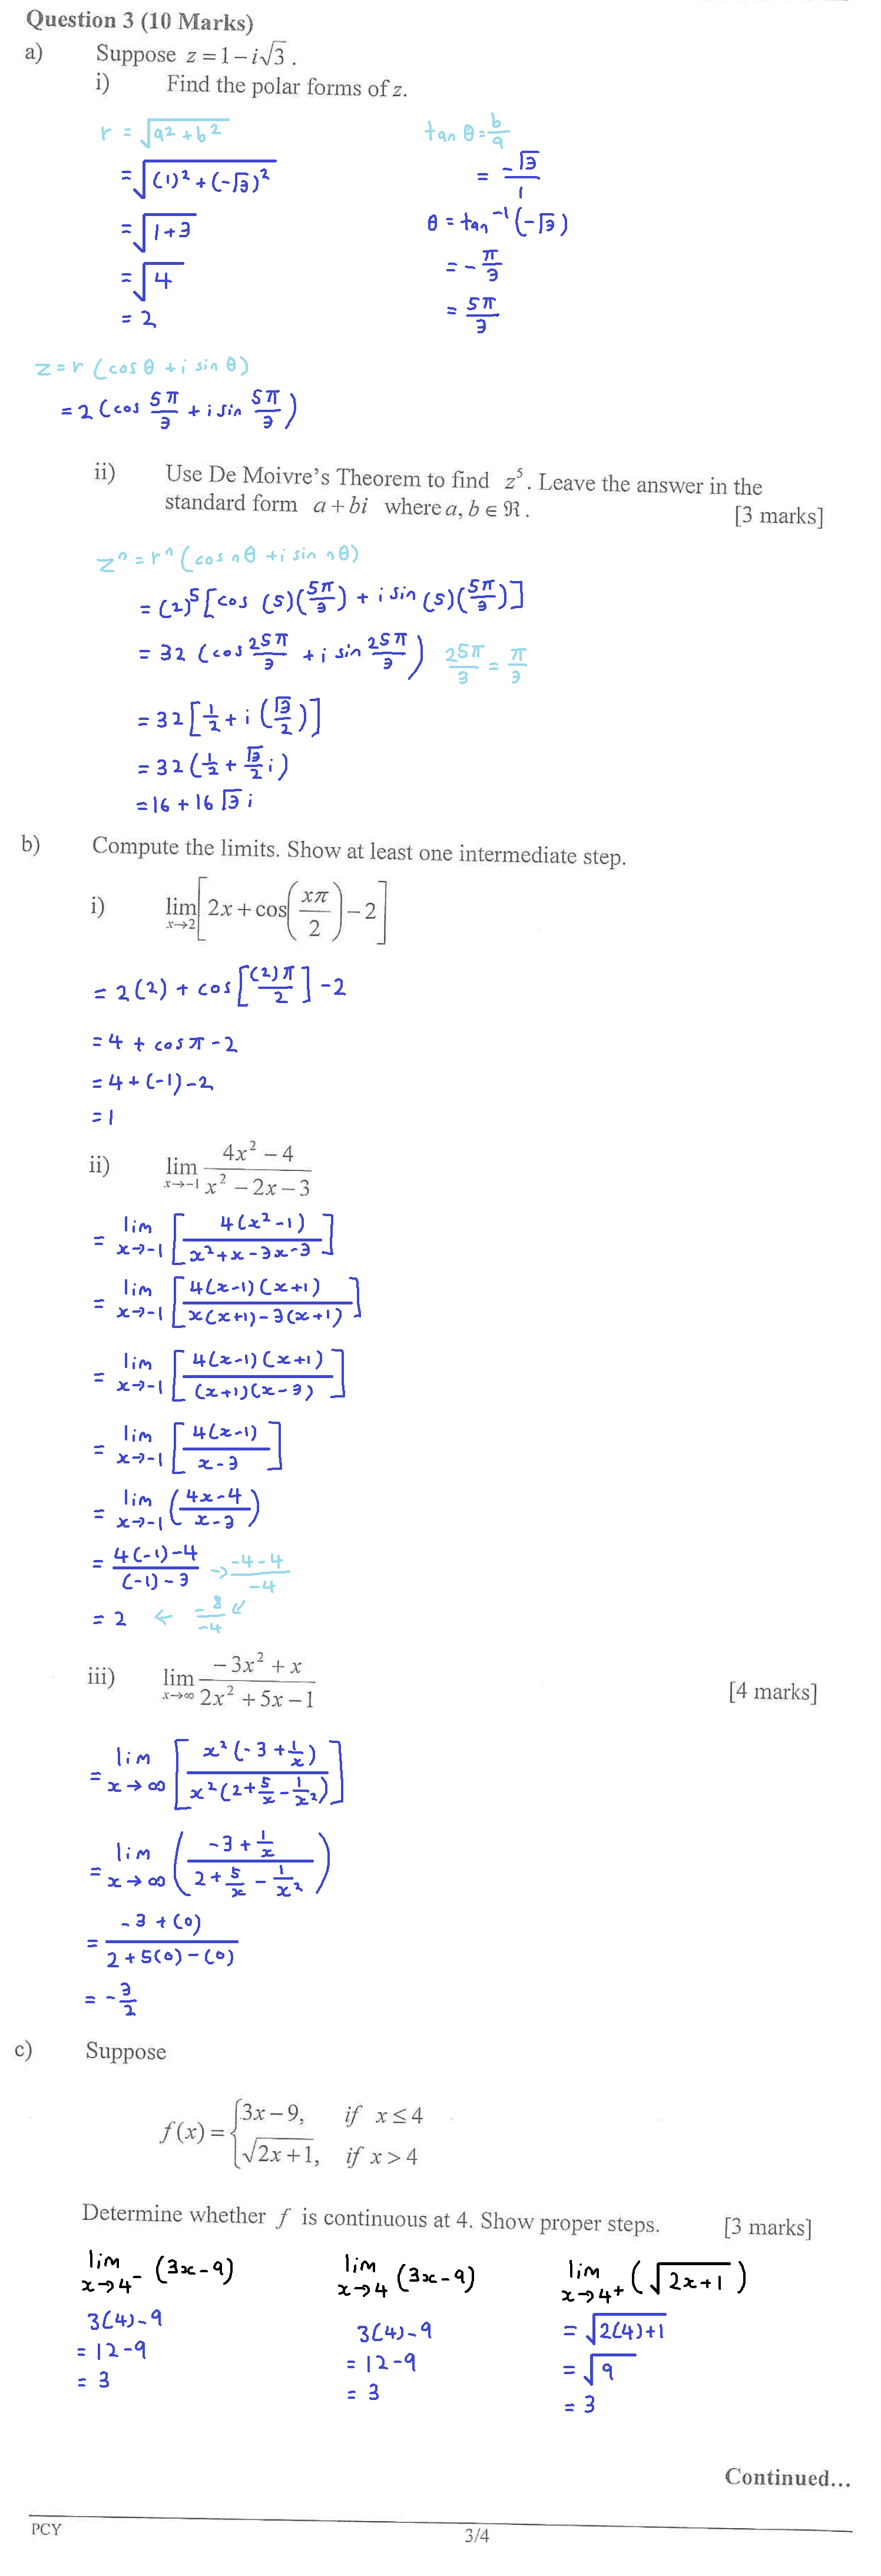 Question 3 (10 Marks)
a) Suppose z = 1 − i√3 .
i) Find the polar forms of z.
r = √(a² + b²)
= √((1)² + (−√3)²)
= √(1+3)
= √4
= 2
tan θ = b/a
= −√3/1
θ = tan⁻¹(−√3)
= −π/3
= 5π/3
z = r (cos θ + i sin θ)
= 2 (cos 5π/3 + i sin 5π/3)
ii) Use De Moivre's Theorem to find z⁵. Leave the answer in the
standard form a + bi where a, b ∈ ℜ . [3 marks]
zⁿ = rⁿ (cos nθ + i sin nθ)
= (2)⁵ [cos (5)(5π/3) + i sin (5)(5π/3)]
= 32 (cos 25π/3 + i sin 25π/3) 25π/3 = π/3
= 32 [1/2 + i (√3/2)]
= 32 (1/2 + √3/2 i)
= 16 + 16√3 i
b) Compute the limits. Show at least one intermediate step.
i) lim x→2 [2x + cos(xπ/2) − 2]
= 2(2) + cos[(2)π/2] − 2
= 4 + cos π − 2
= 4 + (−1) − 2
= 1
ii) lim x→−1 (4x² − 4)/(x² − 2x − 3)
= lim x→−1 [4(x²−1)/(x²+x−3x−3)]
= lim x→−1 [4(x−1)(x+1)/(x(x+1)−3(x+1))]
= lim x→−1 [4(x−1)(x+1)/((x+1)(x−3))]
= lim x→−1 [4(x−1)/(x−3)]
= lim x→−1 ((4x−4)/(x−3))
= (4(−1)−4)/((−1)−3) → (−4−4)/(−4)
= 2 ← −8/−4 ↙
iii) lim x→∞ (−3x² + x)/(2x² + 5x − 1) [4 marks]
= lim x→∞ [x²(−3+1/x)/(x²(2+5/x−1/x²))]
= lim x→∞ ((−3+1/x)/(2+5/x−1/x²))
= (−3+(0))/(2+5(0)−(0))
= −3/2
c) Suppose
f(x) = { 3x − 9, if x ≤ 4
√(2x+1), if x > 4
Determine whether f is continuous at 4. Show proper steps. [3 marks]
lim x→4⁻ (3x−9)
3(4)−9
= 12−9
= 3
lim x→4 (3x−9)
3(4)−9
= 12−9
= 3
lim x→4⁺ (√(2x+1))
= √(2(4)+1)
= √9
= 3
Continued...
PCY 3/4